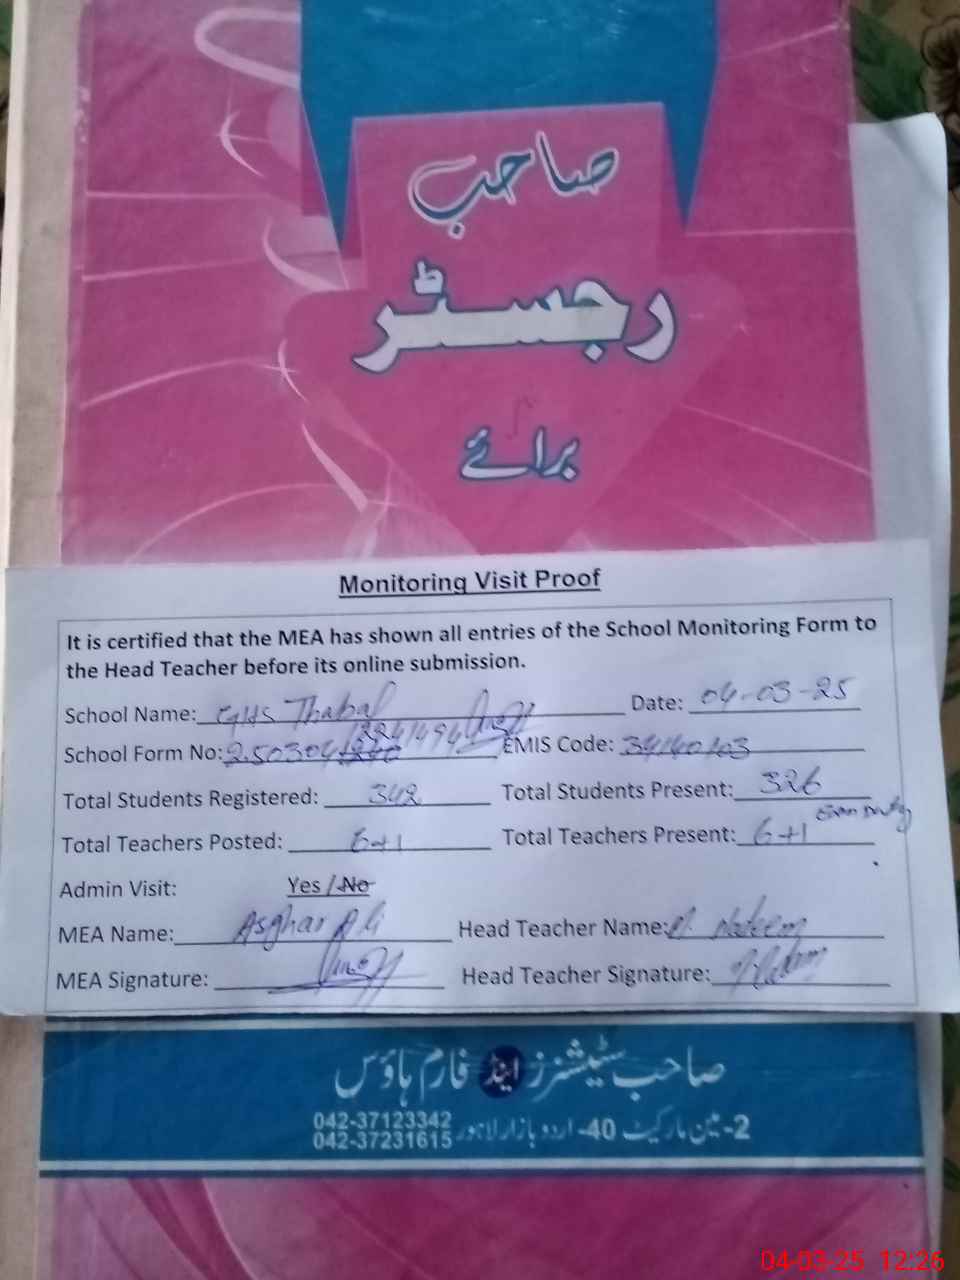 صاحب
رجسٹر
برائے
Monitoring Visit Proof
It is certified that the MEA has shown all entries of the School Monitoring Form to
the Head Teacher before its online submission.
School Name: GHS Thabal Date: 04-03-25
School Form No: EMIS Code:
Total Students Registered: 342 Total Students Present: 326
Total Teachers Posted: 6+1 Total Teachers Present: 6+1 Exam Duty
Admin Visit: Yes / No
MEA Name: Asghar Ali Head Teacher Name: M. Nadeem
MEA Signature: Head Teacher Signature:
صاحب سٹیشنرز اینڈ فارم ہاؤس
2-مین مارکیٹ 40-اردو بازار لاہور 042-37123342
042-37231615
04-03-25 12:26